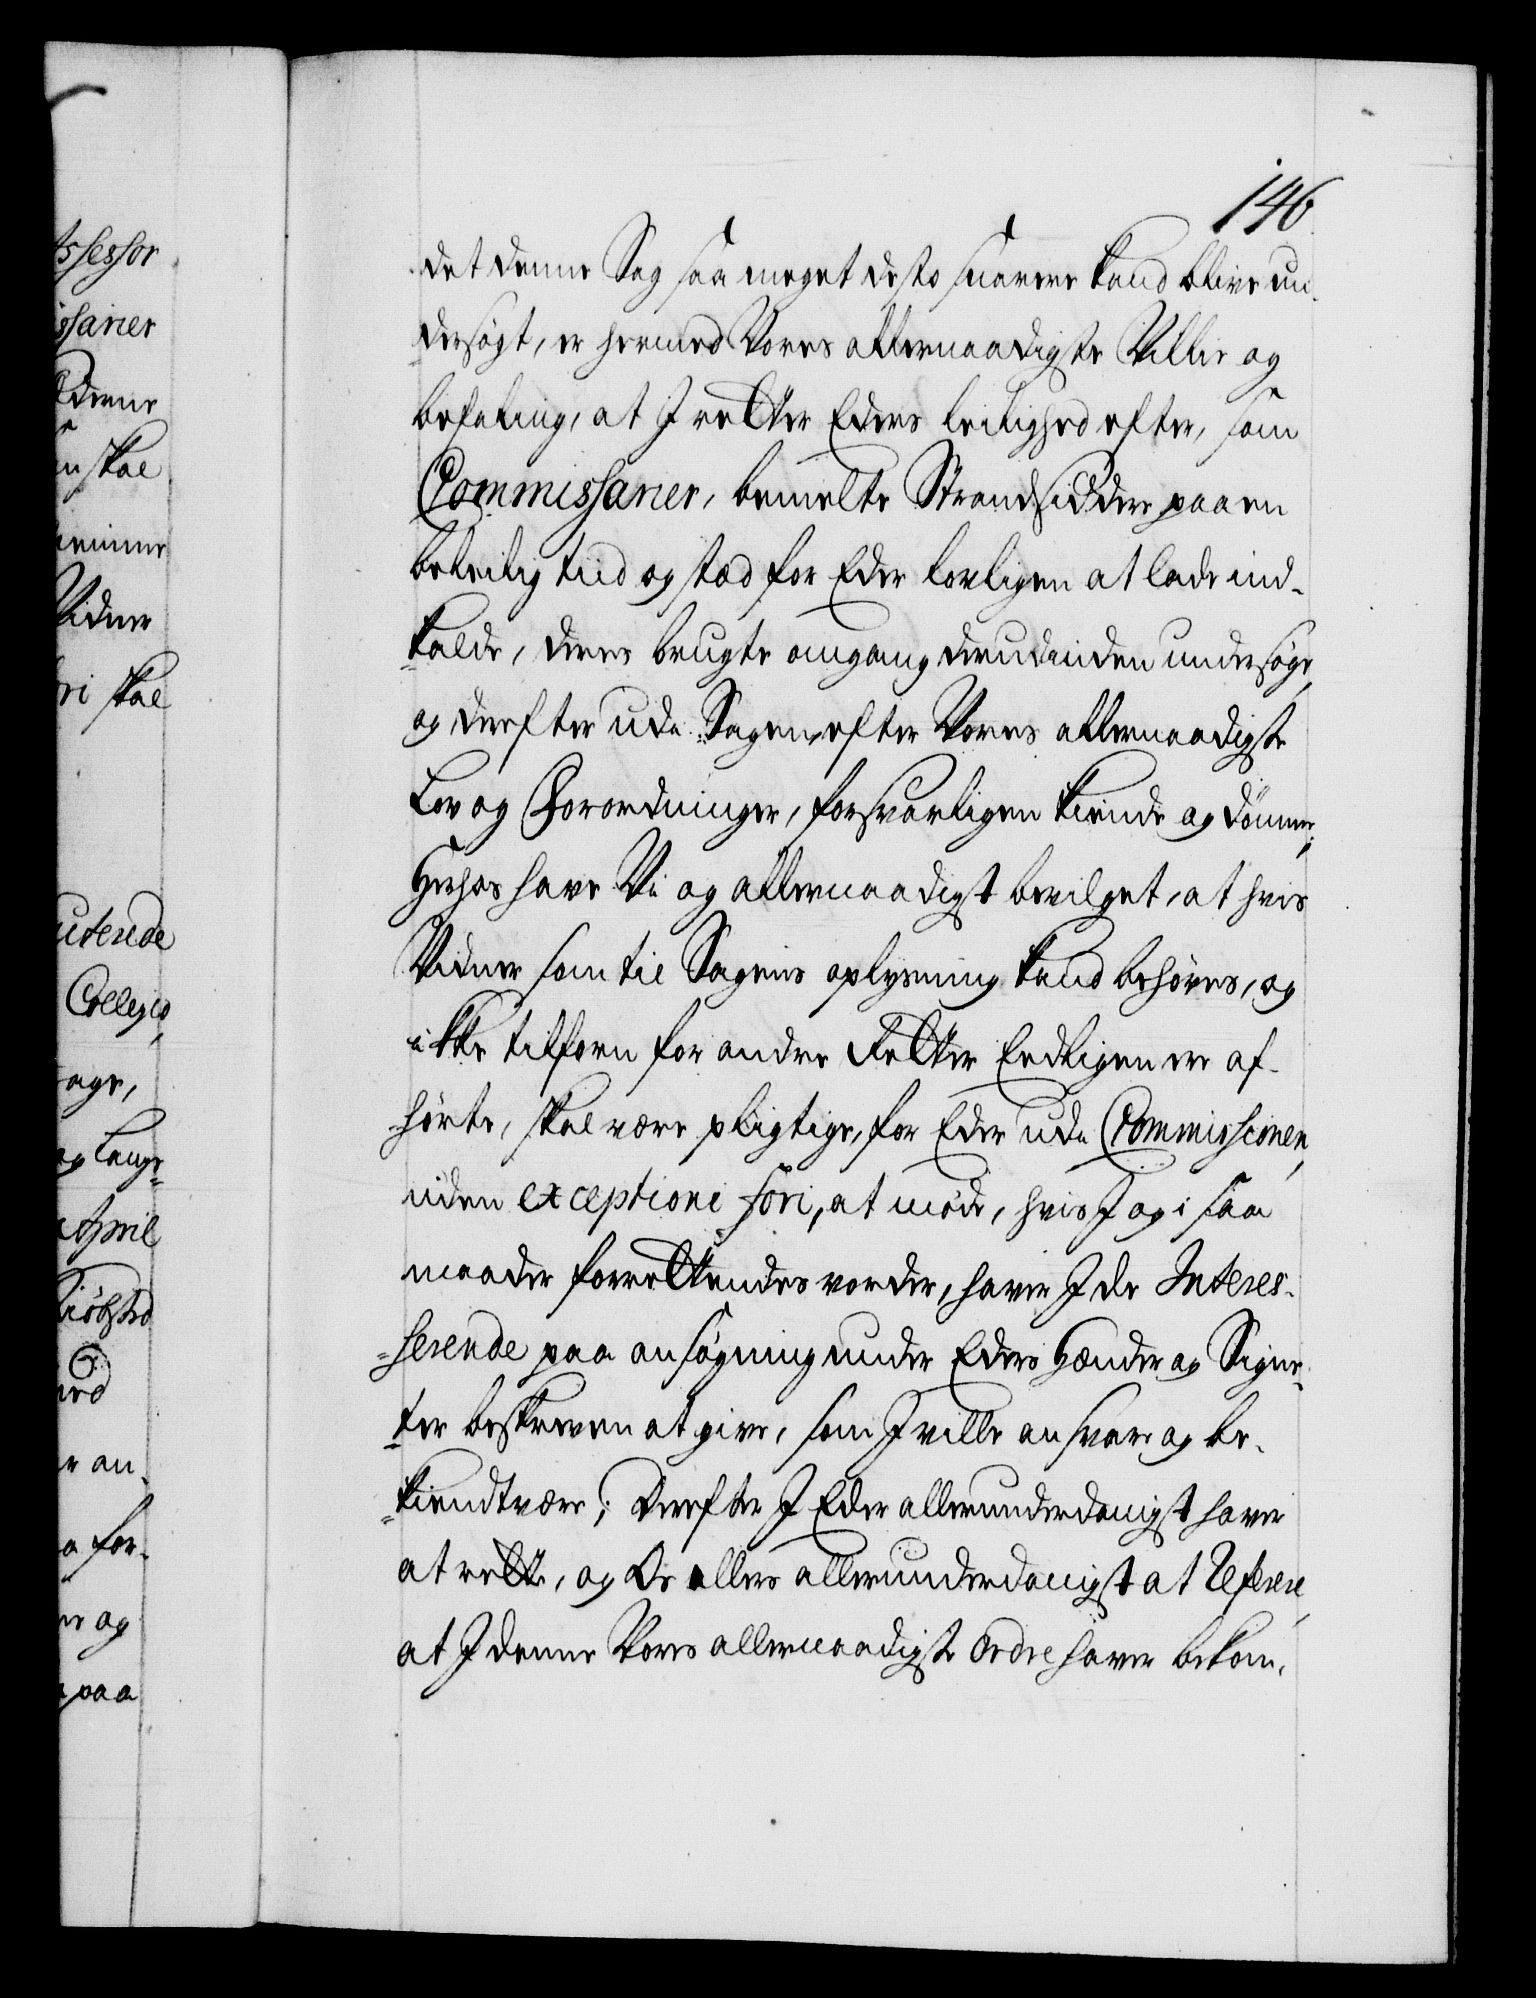 146
det denne Sag saa meget desto snarere kand blive un-
dersøgt, er hermed Vores allernaadigste Villie og
befaling, at I retter Eders leilighed efter, som
Commissarier, bemelte Strandsiddere paa en
beleilig tiid og stæd for Eder lovligen at lade ind-
kalde, deres brugte omgang derudinden undersøge,
og derefter udi Sagen, efter Vores allernaadigste
Lov og Forordninger, forsvarligen kiende og dømme;
Herhos have Vi og allernaadigst bevilget, at hvis
Vidner som til Sagens oplysning kand behøves, og
ikke tilforn for andre Retter Eedligen ere af-
hørte, skal være pligtige, for Eder udi Commissionen,
uden exceptione fori, at møde, hvis I og i saa
maader forrettendes vorder, haver I de Interes-
serende paa ansøgning under Eders Hænder og Signe-
ter beskreven at give, som I ville ansvare og be-
kiendt være; Derefter I Eder allerunderdanigst haver
at rette, og Os ellers allerunderdanigst at Referere,
at I denne Vores allernaadigste Ordre haver bekom-
ssessor
issarier
skal
Vidner
ri skal
uterede
Collegio,
age,
og Lauge
April
Kiøbsted
an-
for-
og
paa